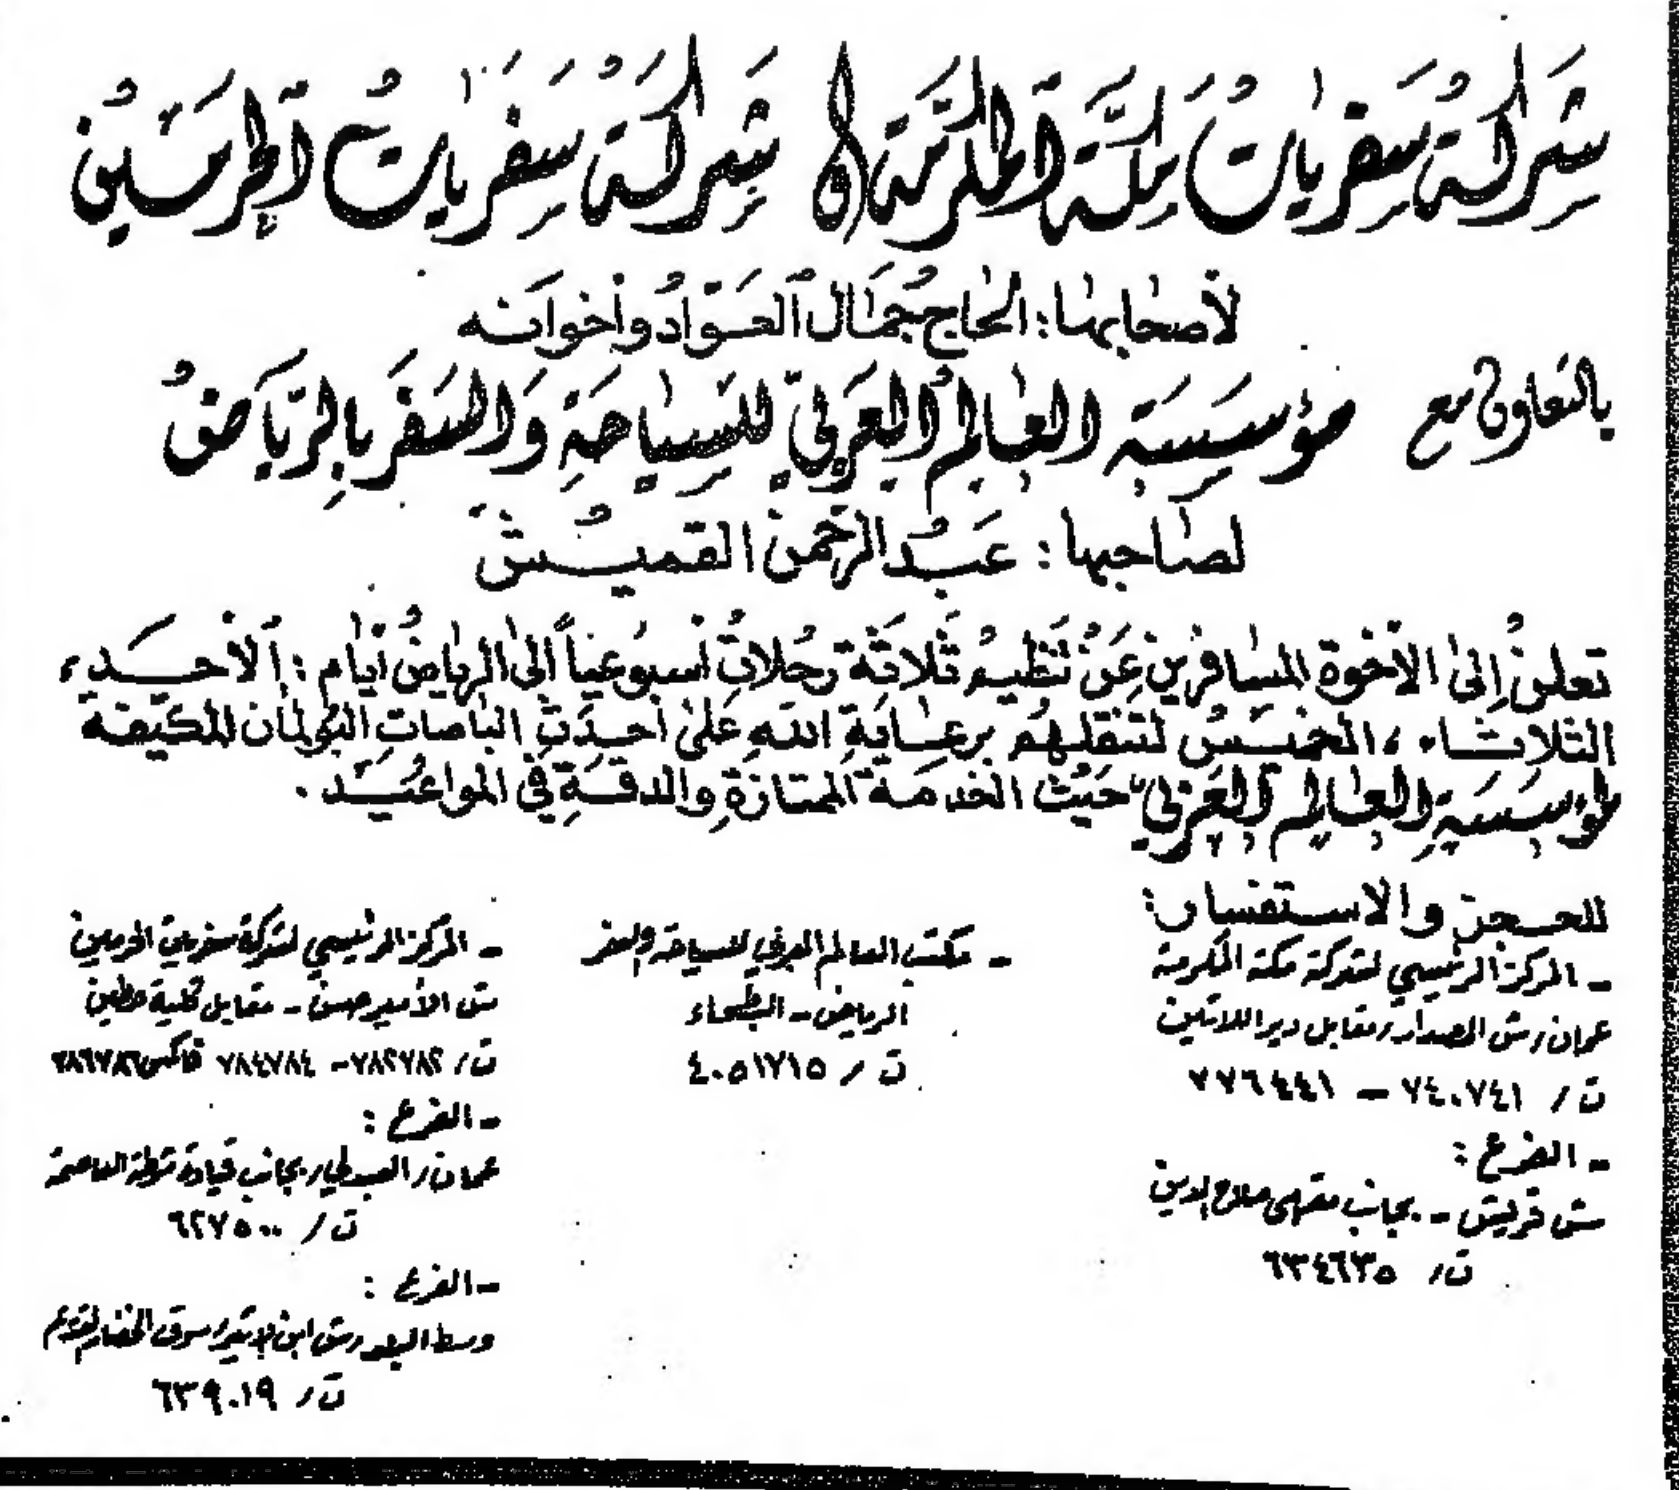 شركة سفريات مكة المكرمة و شركة سفريات الحرمين
لأصحابها: الحاج جمال العواد وأخوانه
بالتعاون مع مؤسسة العالم العربي للسياحة والسفر بالرياض
لصاحبها: عبد الرحمن القميش
تعلن إلى الأخوة المسافرين عن تنظيم ثلاثة رحلات أسبوعياً الى الرياض أيام: الأحد،
الثلاثاء، الخميس لتنقلهم برعاية الله على أحدث الباصات البولمان المكيفة
لمؤسسة العالم العربي" حيث الخدمة الممتازة والدقة في المواعيد.
للحجز والاستفسار:
- المركز الرئيسي لشركة مكة المكرمة
عمان / ش المصدار / مقابل دير اللاتين
ت / ٧٤٠٧٤١ - ٧٧٦٤٤١
- الفرع:
ش قريش - بجانب مقهى صلاح الدين
ت / ٦٣٤٦٣٥
- مكتب العالم العربي للسياحة والسفر
الرياض - البطحاء
ت / ٤٠٥١٧١٥
- المركز الرئيسي لشركة سفريات الحرمين
ش الأمير حسن - مقابل كلية حطين
ت / ٧٨٢٧٨٢ - ٧٨٤٧٨٤ فاكس ٧٨٦٧٨٦
- الفرع:
عمان / العبدلي / بجانب قيادة شرطة العاصمة
ت / ٦٢٧٥٠٠
- الفرع:
وسط البلد / ش ابن الاثير / سوق الخضار القديم
ت / ٦٣٩٠١٩